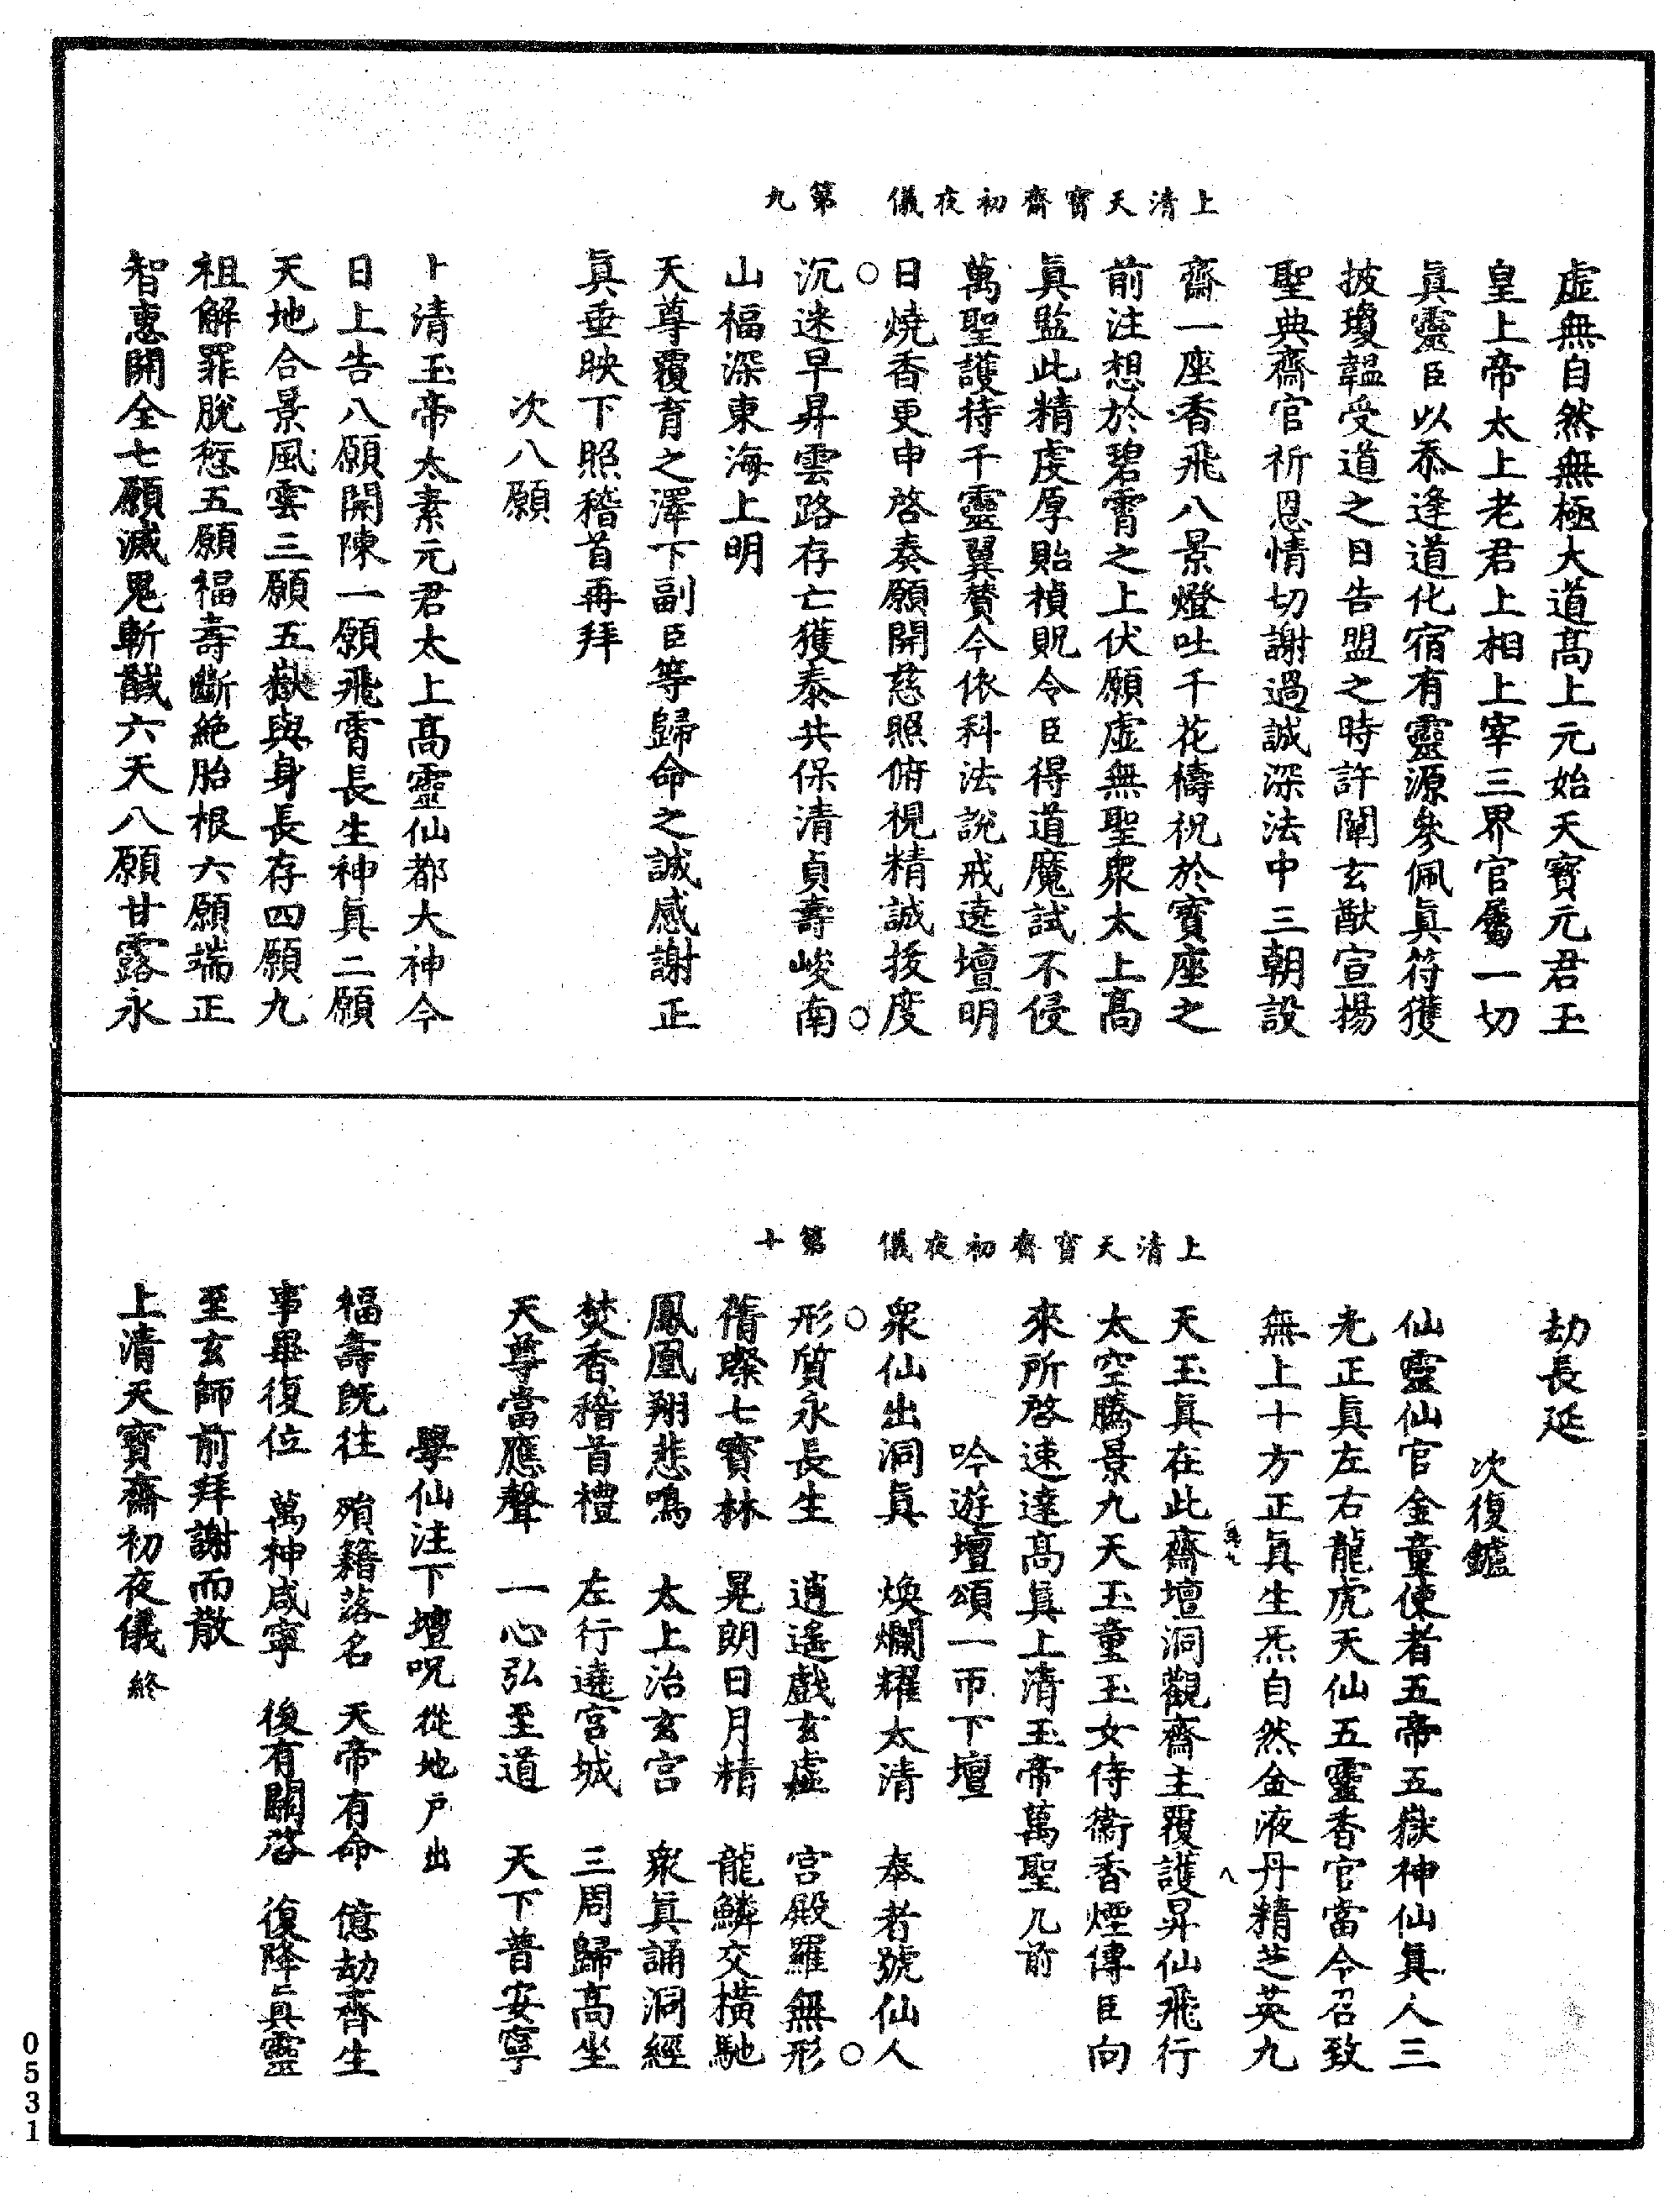 上清天寳齋初夜儀　第九
虚無自然無極大道髙上元始天寳元君玉
皇上帝太上老君上相上宰三界官屬一切
眞靈臣以忝逢道化宿有靈源參佩眞符獲
披瓊韞受道之日告盟之時許闡玄猷宣揚
聖典齋官祈恩情切謝過誠深法中三朝設
齋一座香飛八景燈吐千花檮祝於寳座之
前注想於碧霄之上伏願虚無聖衆太上髙
眞監此精虔厚貽禎貺令臣得道魔試不侵
萬聖護持千靈翼賛今依科法說戒遶壇明
日燒香更申啓奏願開慈照俯視精誠拔度
沉迷早昇雲路存亡獲泰共保清貞壽峻南
山福深東海上明
天尊覆育之澤下副臣等歸命之誠感謝正
眞垂映下照稽首再拜
次八願
上清玉帝太素元君太上髙靈仙都大神今
日上告八願開陳一願飛霄長生神眞二願
天地合景風雲三願五嶽與身長存四願九
祖解罪脫愆五願福壽斷絶胎根六願端正
智惠開全七願滅鬼斬馘六天八願甘露永
上清天寳齋初夜儀　第十
劫長延
次復鑪
仙靈仙官金童使者五帝五嶽神仙眞人三
光正眞左右龍虎天仙五靈香官當令召致
無上十方正眞生炁自然金液丹精芝英九
天玉眞在此齋壇洞觀齋主覆護昇仙飛行
太空騰景九天玉童玉女侍衞香煙傳臣向
來所啓速達髙眞上清玉帝萬聖几前
吟遊壇頌一帀下壇
衆仙出洞眞　煥爛耀太清　奉者號仙人
形質永長生　逍遥戲玄虚　宫殿羅無形
蒨璨七寳林　晃朗日月精　龍鱗交橫馳
鳳凰翔悲鳴　太上治玄宫　衆眞誦洞經
焚香稽首禮　左行遶宫城　三周歸髙坐
天尊當應聲　一心弘至道　天下普安寧
學仙注下壇呪從地户出
福壽旣往　殞籍落名　天帝有命　億劫齊生
事畢復位　萬神咸寧　後有闗啓　復降眞靈
至玄師前拜謝而散
上清天寳齋初夜儀終
0531